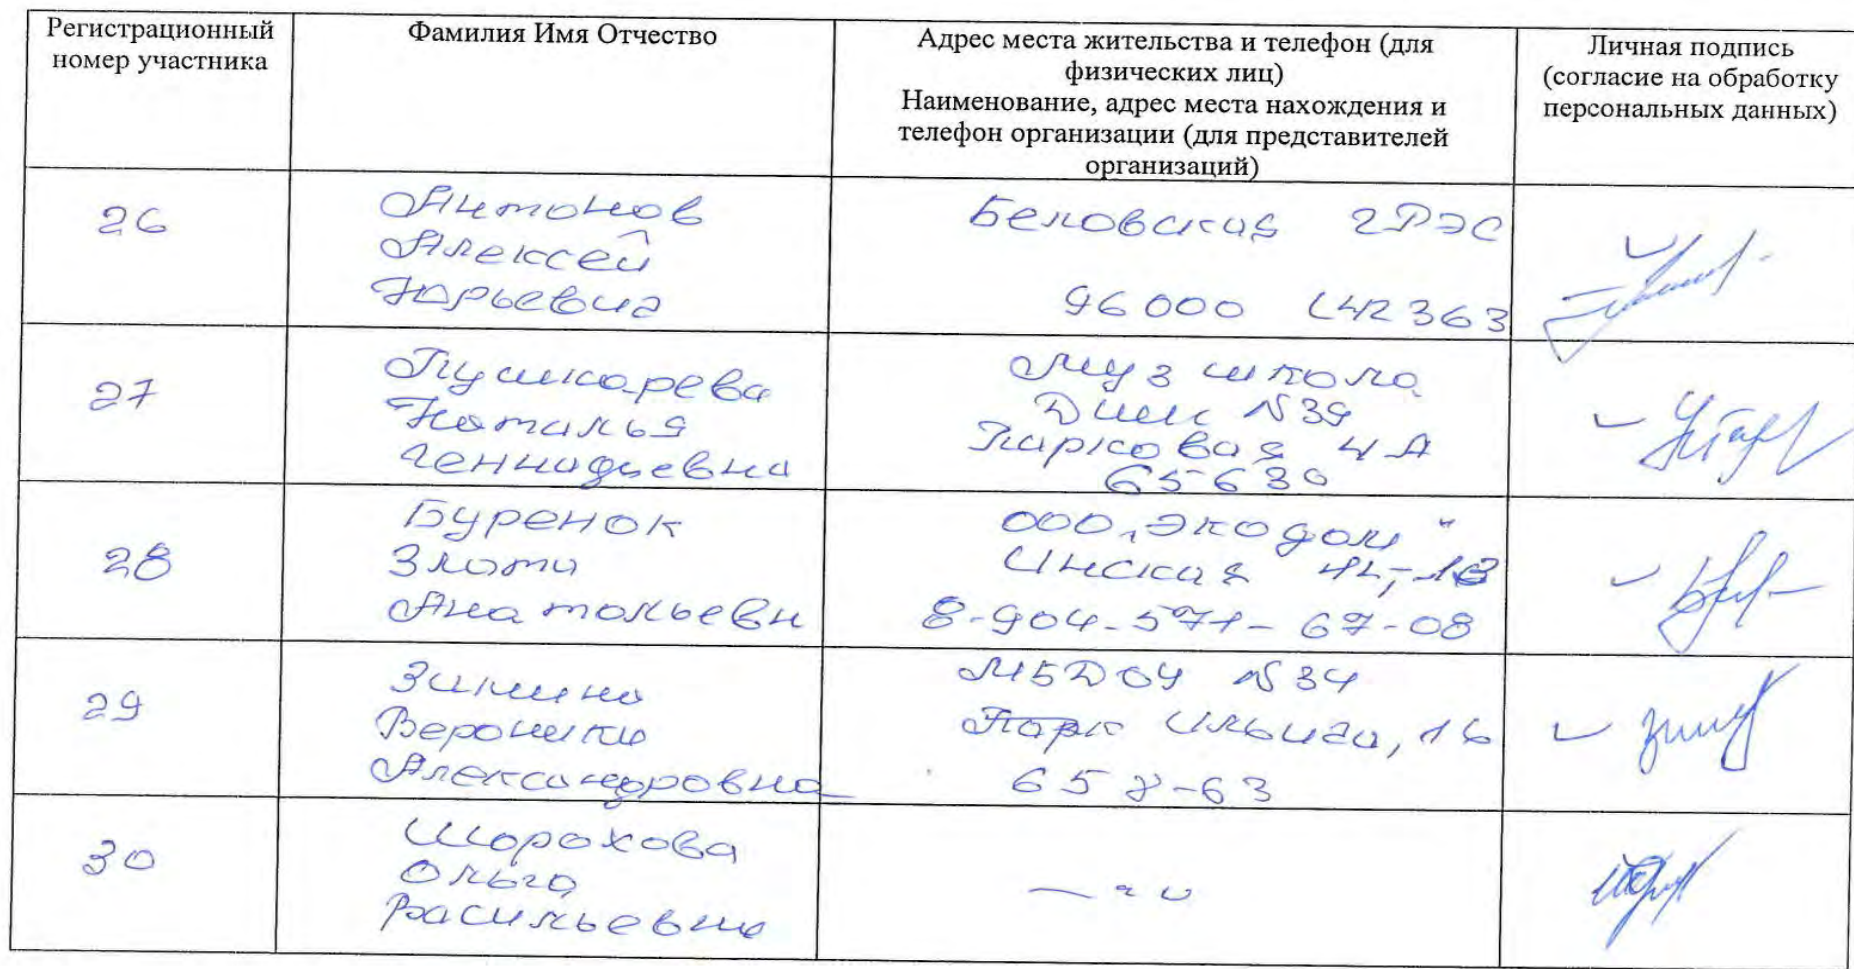 Регистрационный
номер участника
Фамилия Имя Отчество
Адрес места жительства и телефон (для
физических лиц)
Наименование, адрес места нахождения и
телефон организации (для представителей
организаций)
Личная подпись
(согласие на обработку
персональных данных)
26
Антонов
Алексей
Юрьевич
Беловская ГРЭС
96000 (42363
27
Пушкарева
Наталья
Геннадьевна
Муз школа
№39
Парковая 4А
65630
28
Буренок
Злата
Анатольевн
ООО "Экодом"
Инская
8-904-571-67-08
29
Зимина
Вероника
Александровна
МБДОУ №34
Ильича, 16
30
Шорохова
Ольга
Васильевна
— " —